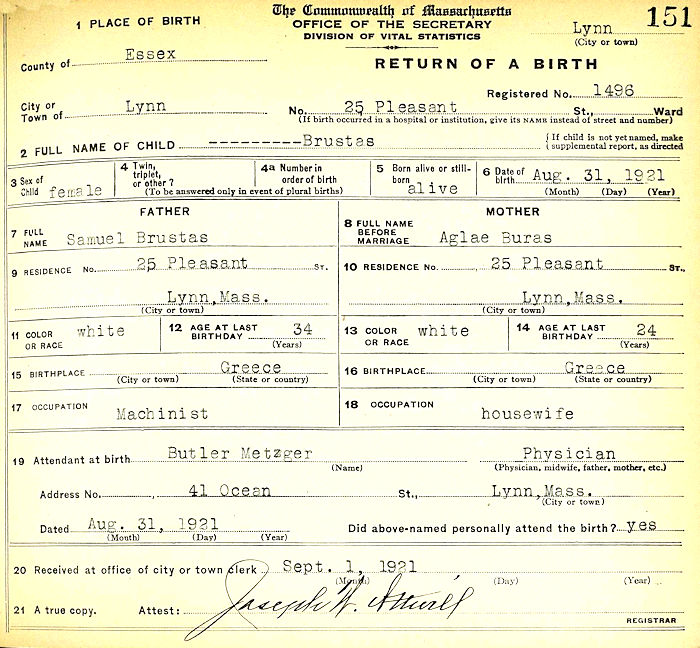 The Commonwealth of Massachusetts
151
1 PLACE OF BIRTH
OFFICE OF THE SECRETARY
Lynn
DIVISION OF VITAL STATISTICS
(City or town)
County of Essex
RETURN OF A BIRTH
Registered No. 1496
City or
Town of Lynn No. 25 Pleasant St., Ward
(If birth occurred in a hospital or institution, give its NAME instead of street and number)
2 FULL NAME OF CHILD ----------Brustas { If child is not yet named, make
{ supplemental report, as directed
3 Sex of Child female 4 Twin, triplet, or other? 4a Number in order of birth 5 Born alive or still-born alive 6 Date of birth Aug. 31, 1921
(To be answered only in event of plural births) (Month) (Day) (Year)
FATHER MOTHER
7 FULL NAME Samuel Brustas 8 FULL NAME BEFORE MARRIAGE Aglae Buras
9 RESIDENCE No. 25 Pleasant ST. 10 RESIDENCE No. 25 Pleasant ST.,
Lynn,Mass. Lynn,Mass.
(City or town) (City or town)
11 COLOR OR RACE white 12 AGE AT LAST BIRTHDAY 34 13 COLOR OR RACE white 14 AGE AT LAST BIRTHDAY 24
(Years) (Years)
15 BIRTHPLACE Greece 16 BIRTHPLACE Greece
(City or town) (State or country) (City or town) (State or country)
17 OCCUPATION Machinist 18 OCCUPATION housewife
19 Attendant at birth Butler Metzger Physician
(Name) (Physician, midwife, father, mother, etc.)
Address No. 41 Ocean St., Lynn,Mass.
(City or town)
Dated Aug. 31, 1921 Did above-named personally attend the birth? yes
(Month) (Day) (Year)
20 Received at office of city or town clerk Sept. 1, 1921
(Month) (Day) (Year)
21 A true copy. Attest: Joseph W. Attwill
REGISTRAR